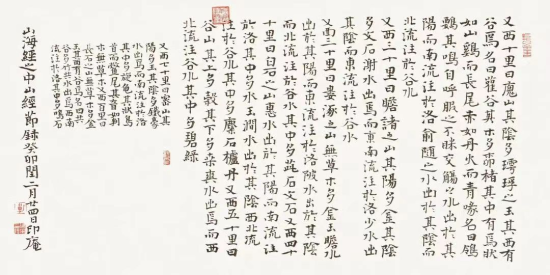 又西十里曰廆山其陰多㻬琈之玉其西有
谷焉名曰雚谷其木多柳楮其中有鳥焉狀
如山鷄而長尾赤如丹火而青喙名曰鴒
鸚其鳴自呼服之不眯交觴之水出於其
陽而南流注于洛俞隨之水出於其陰而
北流注于谷水
又西三十里曰瞻諸之山其陽多金其陰
多文石謝水出焉而東南流注于洛少水出
其陰而東流注于谷水
又西三十里曰婁涿之山無草木多金玉瞻水
出於其陽而東流注于洛陂水出於其陰
而北流注于谷水其中多茈石文石又西四十
里曰白石之山惠水出於其陽而南流注
於洛其中多水玉澗水出於其陰西北流
注於谷水其中多麋石櫨丹又西五十里曰
谷山其上多穀其下多桑爽水出焉而西
北流注于谷水其中多碧綠
又西七十二里曰密山其
陽多玉其陰多鐵豪
水出焉而南流注于洛
其中多旋龜其狀鳥
首而鱉尾其音如判
木無草木又西百里曰
長石之山無草木多金
玉其西有谷焉名曰共
谷多竹共水出焉西南
流注于洛其中多鳴石
山海經之中山經節錄癸卯閏二月廿四日印庵